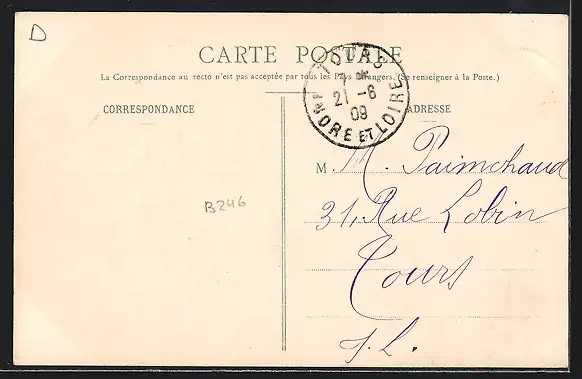 D
CARTE POSTALE
La Correspondance au recto n'est pas acceptée par tous les Pays étrangers. (Se renseigner à la Poste.)
TOURS
7
21 -6
09
INDRE ET LOIRE
CORRESPONDANCE
ADRESSE
M. M. Paimchaud
31, Rue Lobin
Tours
I. L.
B246